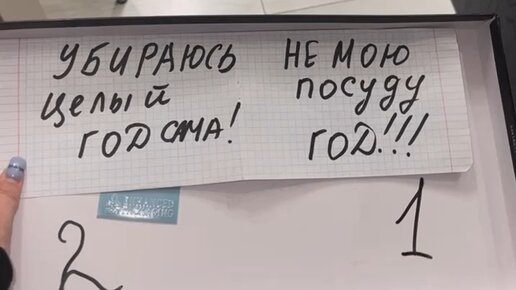 УБИРАЮСЬ
ЦЕЛЫЙ
ГОД САМА!
НЕ МОЮ
ПОСУДУ
ГОД!!!
2
1